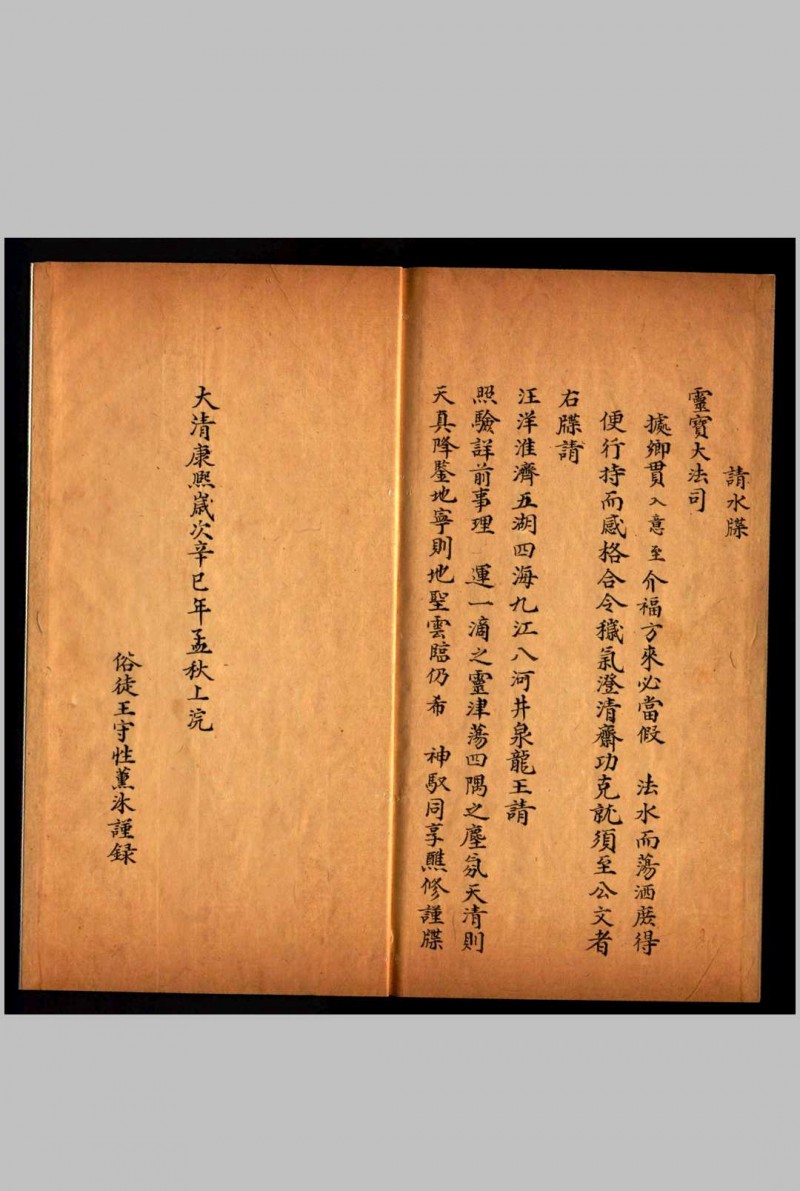 請水牒
靈寶大法司
據鄉貫入意至介福方來必當假 法水而蕩洒庻得
便行持而感格合令穢氣澄清齋功克就須至公文者
右牒請
汪洋淮濟五湖四海九江八河井泉龍王請
照驗詳前事理 運一滴之靈津蕩四隅之塵氛天清則
天真降鑒地寧則地聖雲臨仍希 神馭同享醮修謹牒
大清康熈嵗次辛巳年孟秋上浣
俗徒王守性薰沐謹録